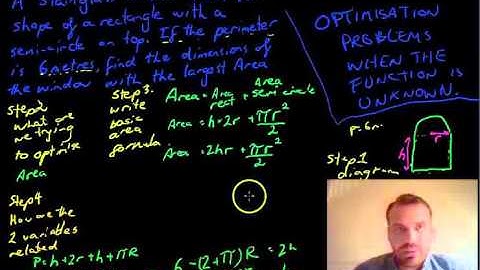 A
shape of a rectangle with a
semi-circle on top. If the perimeter
is 6 metres, find the dimensions of
the window with the largest Area
OPTIMISATION
PROBLEMS
WHEN THE
FUNCTION IS
UNKNOWN.
Step 2
what are
we trying
to optimise
Area
Step 3.
write
basic
area
formula
Area = Area rect + Area semi circle
Area = h×2r + πr²/2
Area = 2hr + πr²/2
P=6m.
h
r
Step 1
diagram
Step 4
How are the
2 variables
related
P=h+2r+h+πR
6-(2+π)R = 2h